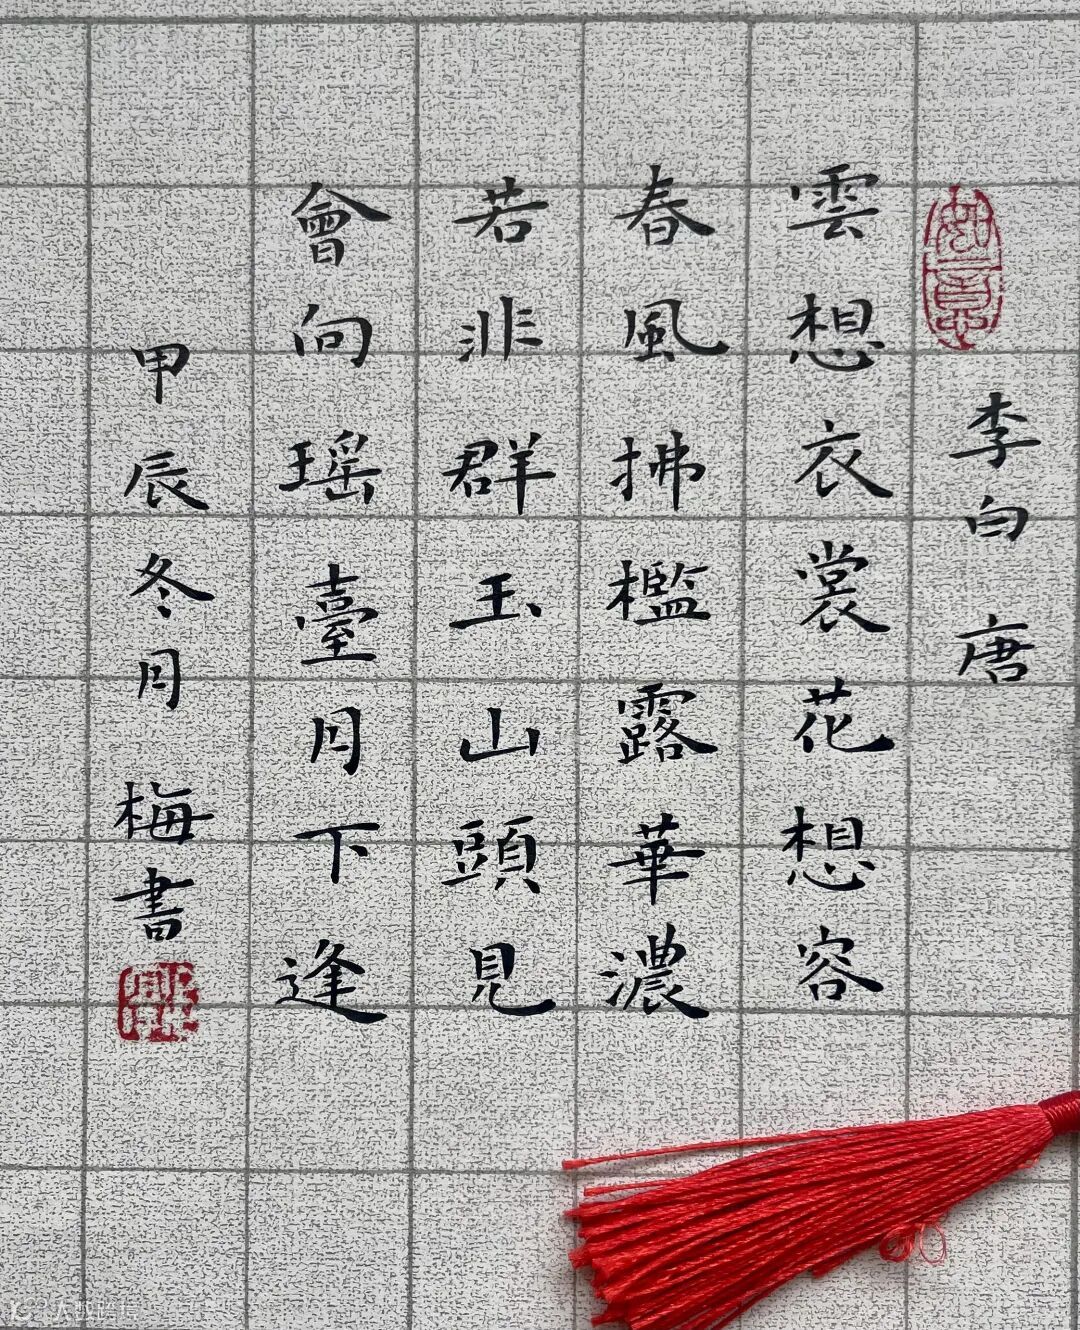 如意
李白 唐
雲想衣裳花想容
春風拂檻露華濃
若非群玉山頭見
會向瑶臺月下逢
甲辰冬月 梅書